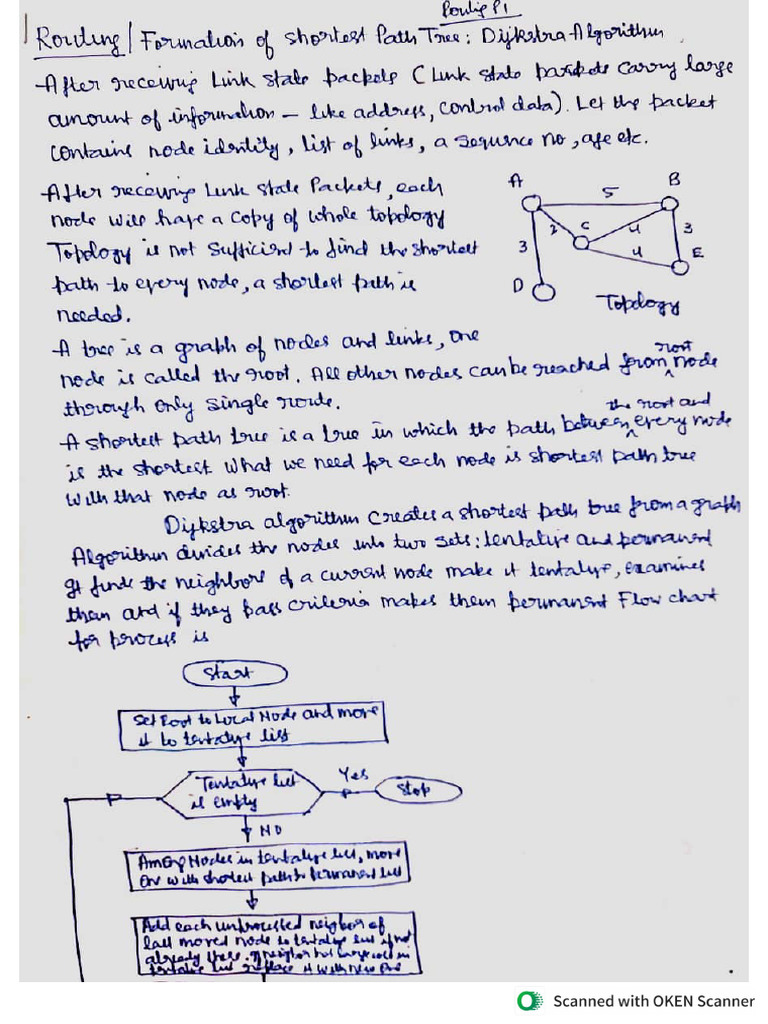 Routing P1
Routing / Formation of shortest Path Tree: Dijkstra Algorithm
After receiving Link state packets (Link state packets carry large
amount of information - like address, control data). Let the packet
contains node identity, list of links, a sequence no, age etc.
After receiving Link State Packets, each
node will have a copy of whole topology
Topology is not sufficient to find the shortest
path to every node, a shortest path is
needed.
A
B
C
D
E
5
2
4
3
3
4
Topology
A tree is a graph of nodes and links, one
node is called the root. All other nodes can be reached from root node
through only single route.
A shortest path tree is a tree in which the path between the root and every node
is the shortest. What we need for each node is shortest path tree
with that node as root.
Dijkstra algorithm creates a shortest path tree from a graph
Algorithm divides the nodes into two sets: tentative and permanent
It finds the neighbors of a current node make it tentative, examines
them and if they pass criteria makes them permanent Flow chart
for process is
Start
Set Root to Local Node and move
it to tentative list
Tentative list
is empty
Yes
Stop
NO
Among Nodes in tentative list, move
one with shortest path to permanent list
Add each unprocessed neighbor of
last moved node to tentative list if not
already there. If neighbor has large cost in
tentative list replace it with new one
Scanned with OKEN Scanner